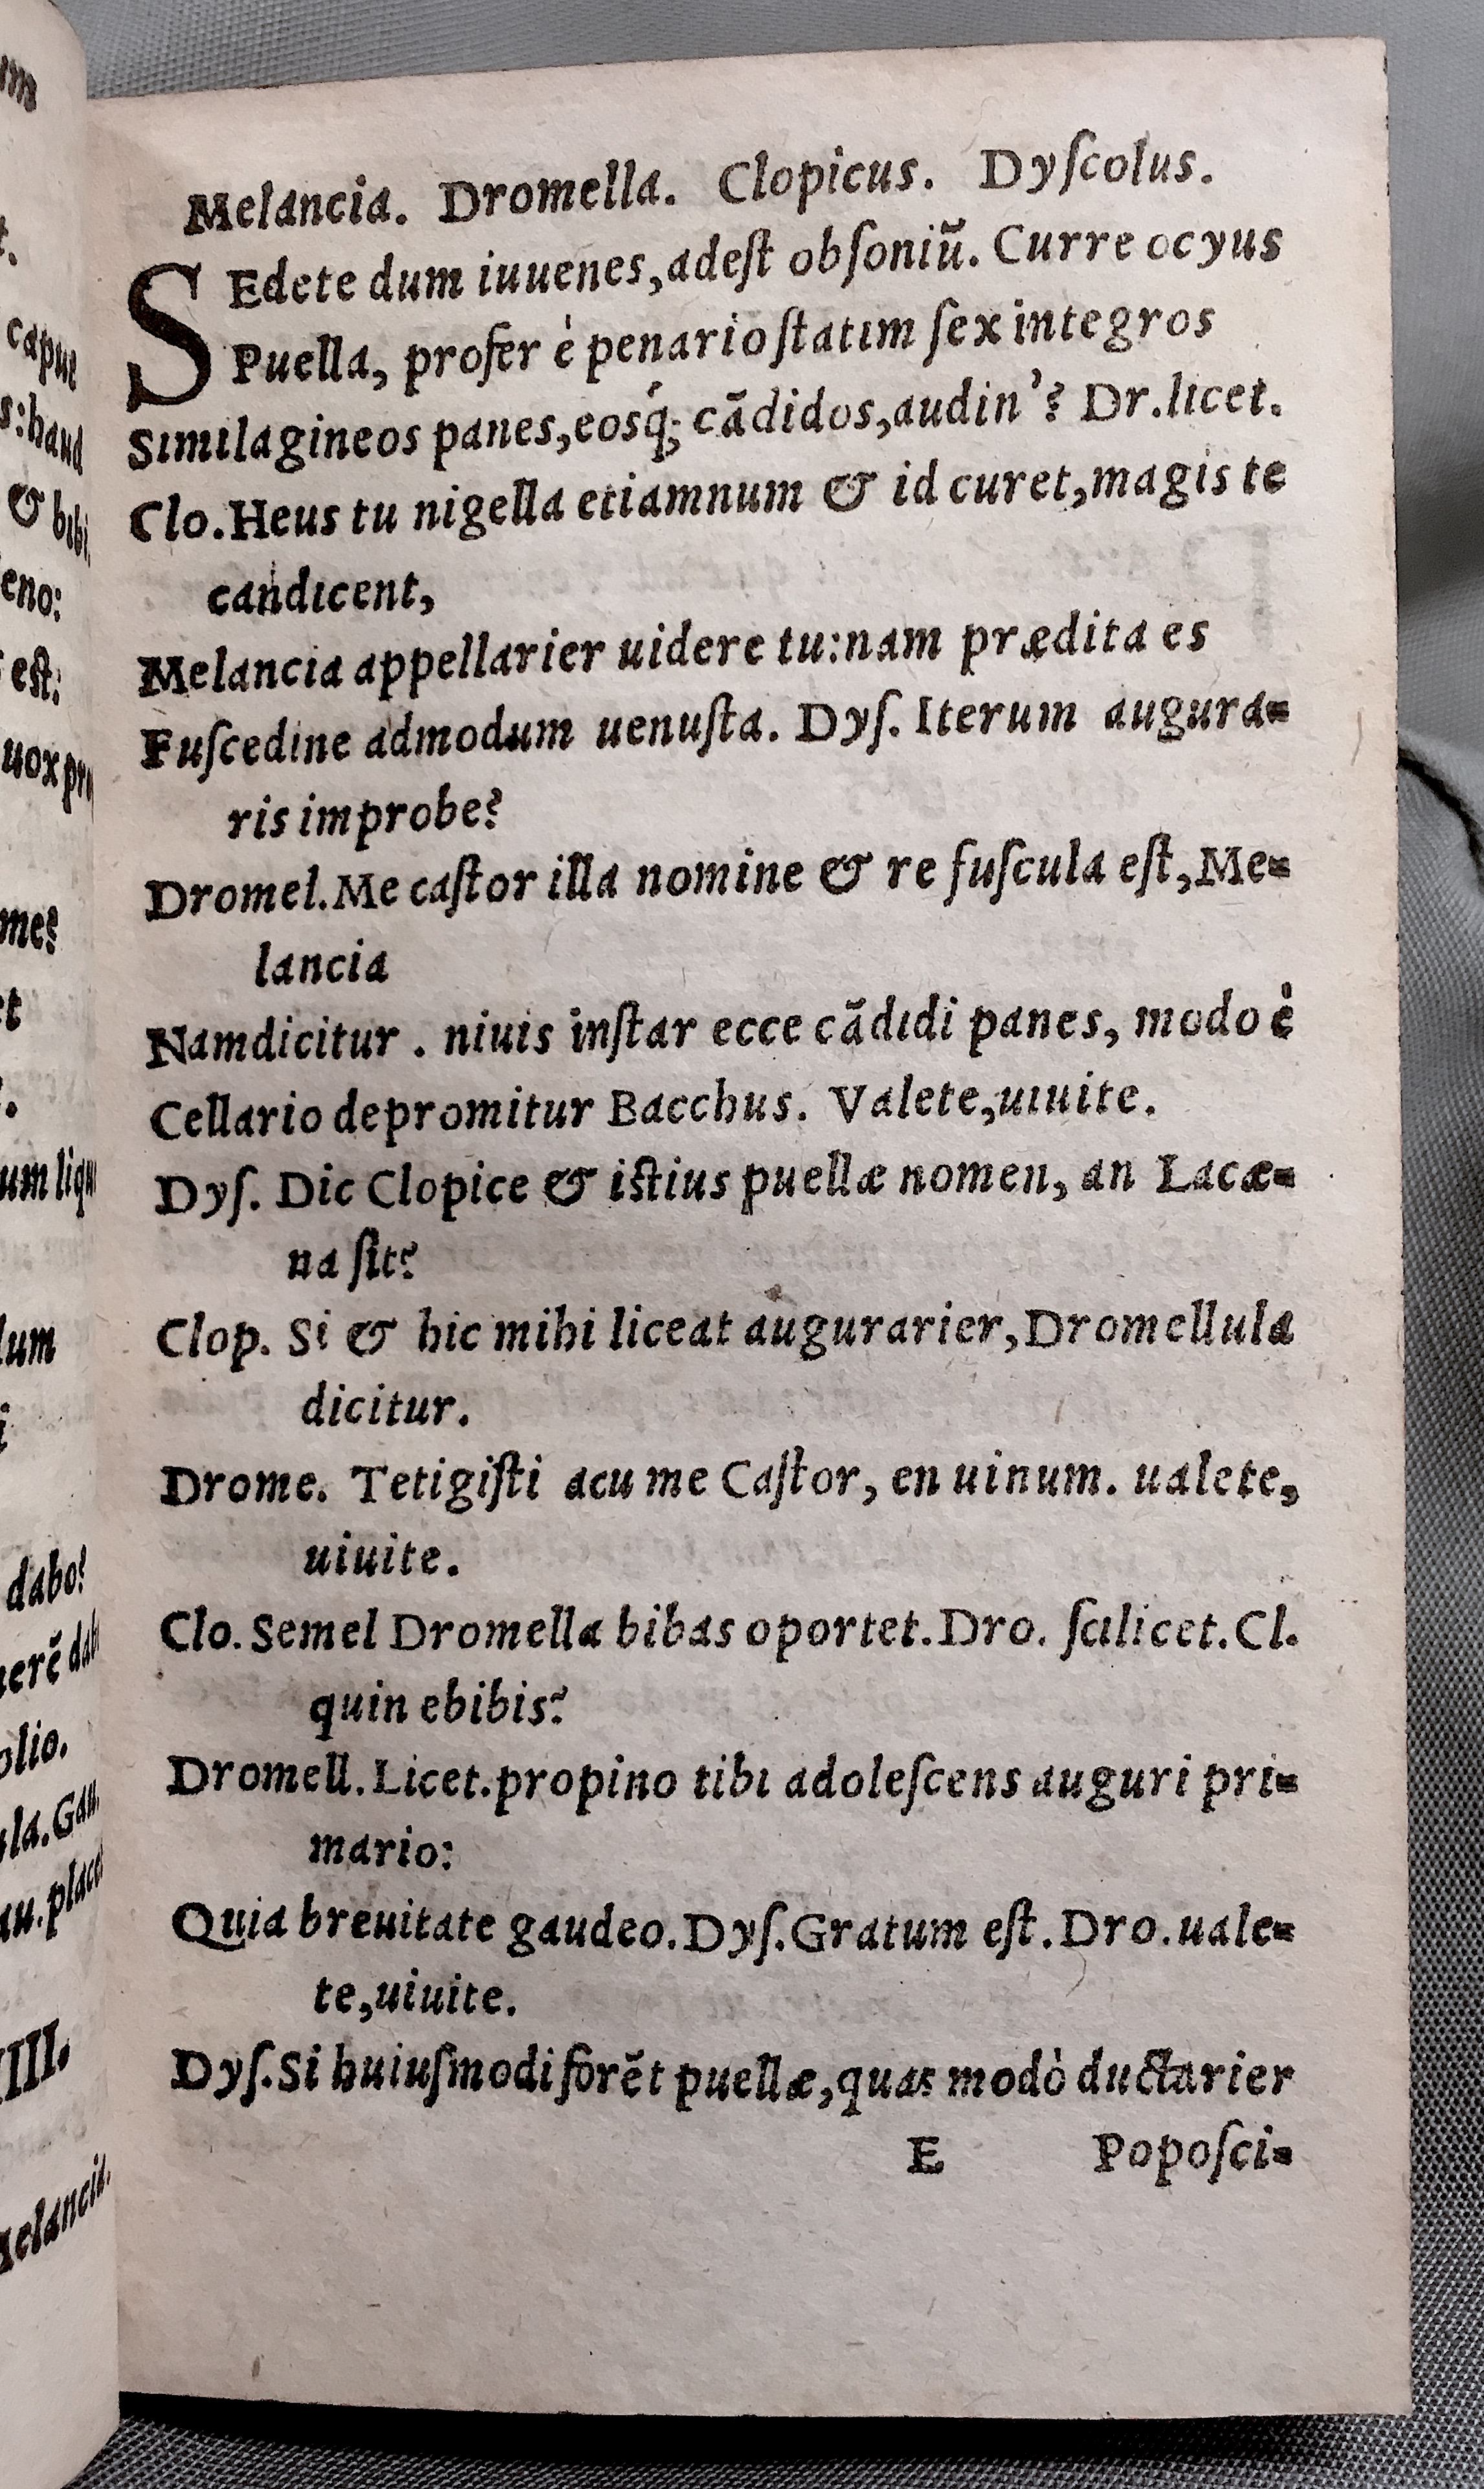 Melancia. Dromella. Clopicus. Dyſcolus.
SEdete dum iuuenes,adeſt obſoniũ. Curre ocyus
Puella, profer è penario ſtatim ſex integros
Similagineos panes,eosq́; cãdidos,audin'? Dr.licet.
Clo.Heus tu nigella etiamnum & id curet,magis te
candicent,
Melancia appellarier uidere tu:nam prædita es
Fuſcedine admodum uenuſta. Dyſ. Iterum augura=
ris improbe?
Dromel.Me caſtor illa nomine & re fuſcula eſt,Me=
lancia
Namdicitur . niuis inſtar ecce cãdidi panes, modo è
Cellario depromitur Bacchus. Valete,uiuite.
Dyſ. Dic Clopice & iſtius puellæ nomen, an Lacæ=
na ſit?
Clop. Si & hic mihi liceat augurarier,Dromellula
dicitur.
Drome. Tetigiſti acu me Caſtor, en uinum. ualete,
uiuite.
Clo. Semel Dromella bibas oportet.Dro. ſcilicet.Cl.
quin ebibis?
Dromell.Licet.propino tibi adoleſcens auguri pri=
mario:
Quia breuitate gaudeo.Dyſ.Gratum eſt.Dro.uale=
te,uiuite.
Dyſ.Si huiuſmodi forẽt puellæ,quas modò ductarier
E Popoſci=
capue
s:haud
& bibi
eno:
eſt:
uox
me?
dabo?
olio.
la.Gau.
au.place
Melancia.